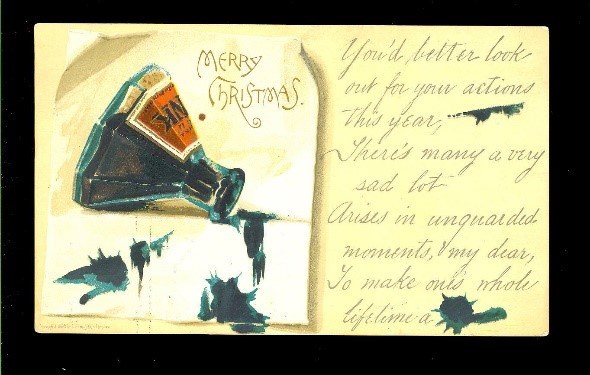 MERRY
CHRISTMAS.
INK
You'd better look
out for your actions
this year,
There's many a very
sad lot
Arises in unguarded
moments, my dear,
To make one's whole
lifetime a